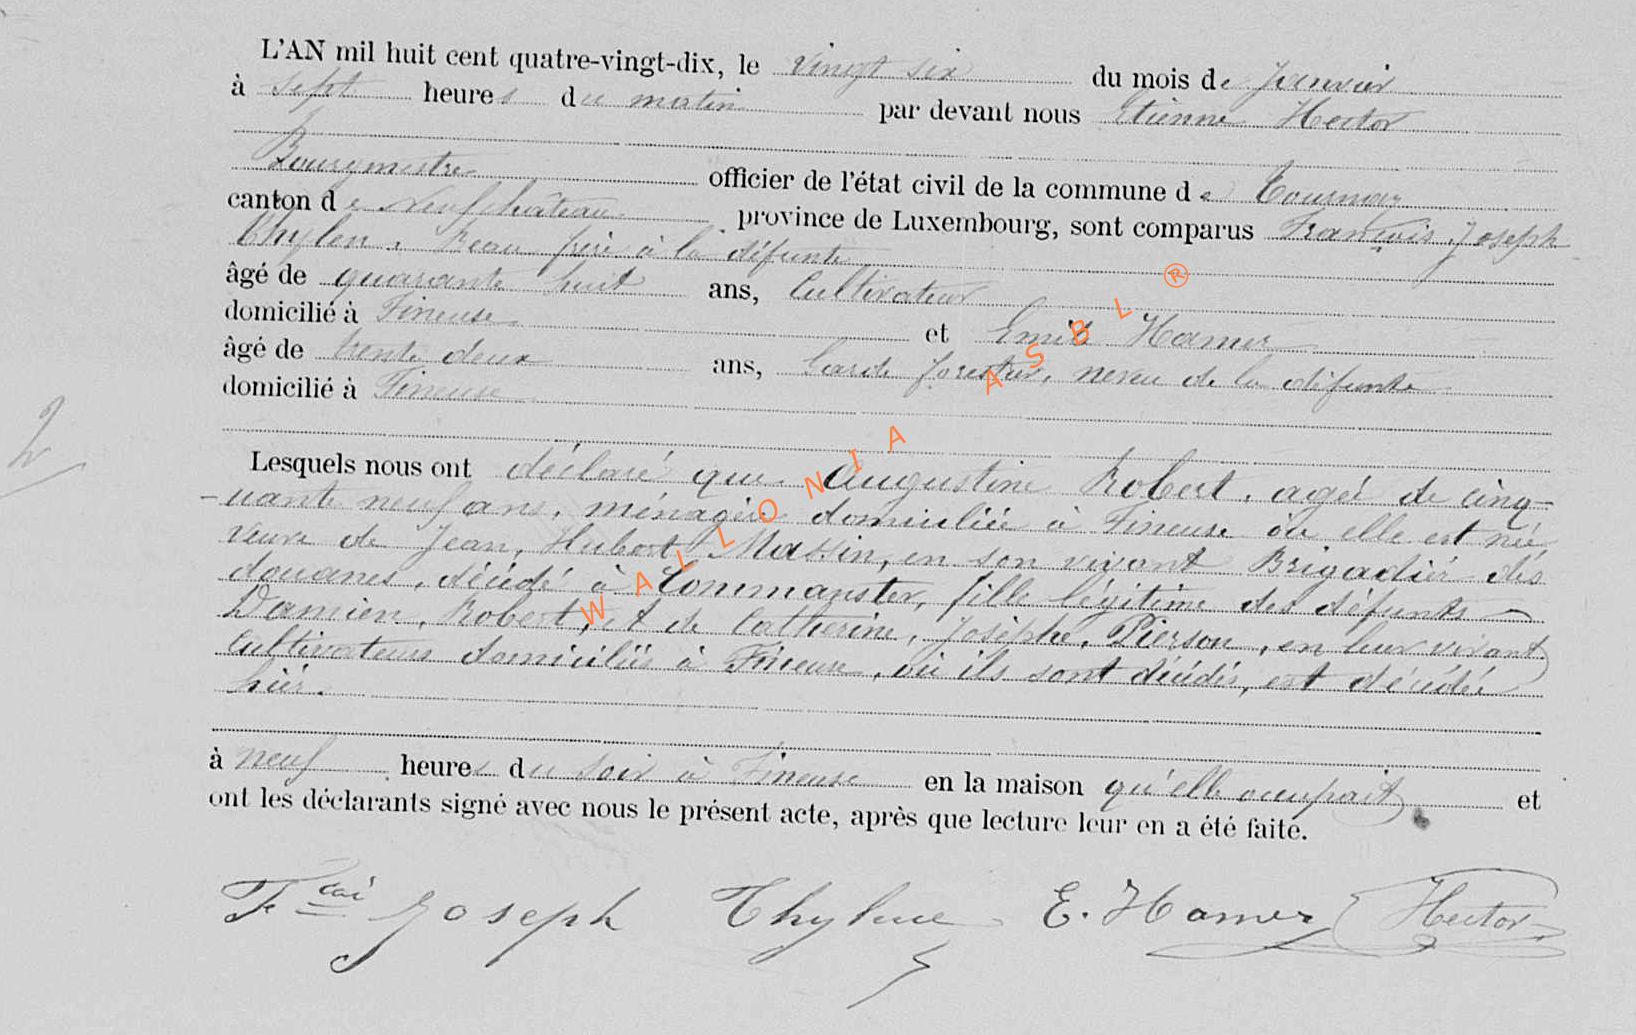 L'AN mil huit cent quatre-vingt-dix, le vingt six du mois de Janvier
à sept heures du matin par devant nous Etienne Hector
Bourgmestre officier de l'état civil de la commune de Tournay
canton de Neufchâteau province de Luxembourg, sont comparus François, Joseph
Thylen, beau frère à la défunte
âgé de quarante huit ans, Cultivateur
domicilié à Fineuse et Emile Hamer
âgé de trente deux ans, Garde forestier, neveu de la défunte
domicilié à Fineuse
2
Lesquels nous ont déclaré que Augustine Robert, agée de cinq-
-uante neuf ans, ménagère domiciliée à Fineuse où elle est née
veuve de Jean, Hubert Massin, en son vivant Brigadier des
douanes, décédé à Commanster, fille légitime des défunts
Damien, Robert, et de Catherine, Josèphe, Pierson, en leur vivant
Cultivateurs domiciliés à Fineuse, où ils sont décédés, est décédée
hier.
à neuf heures du soir à Fineuse en la maison qu'elle occupait et
ont les déclarants signé avec nous le présent acte, après que lecture leur en a été faite.
Fçois Joseph E. Hamer Hector
WALLONIA ASBL ®